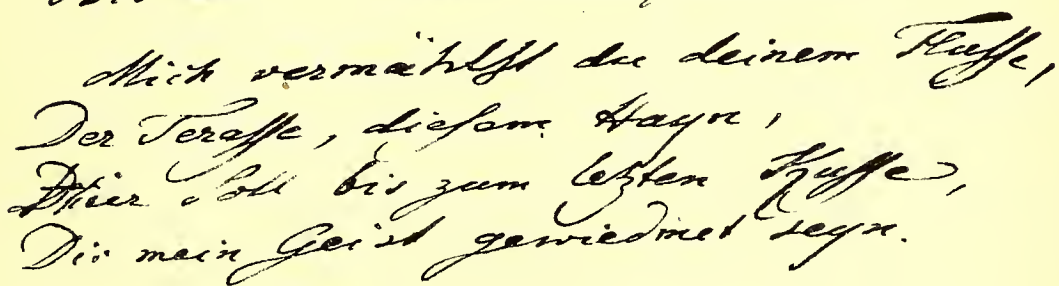 Mich vermählſt du deinem Fluſſe,
Der Teraſſe, dieſem Hayn,
Hier ſoll bis zum letzten Kuſſe,
Dir mein Geist gewiedmet seyn.